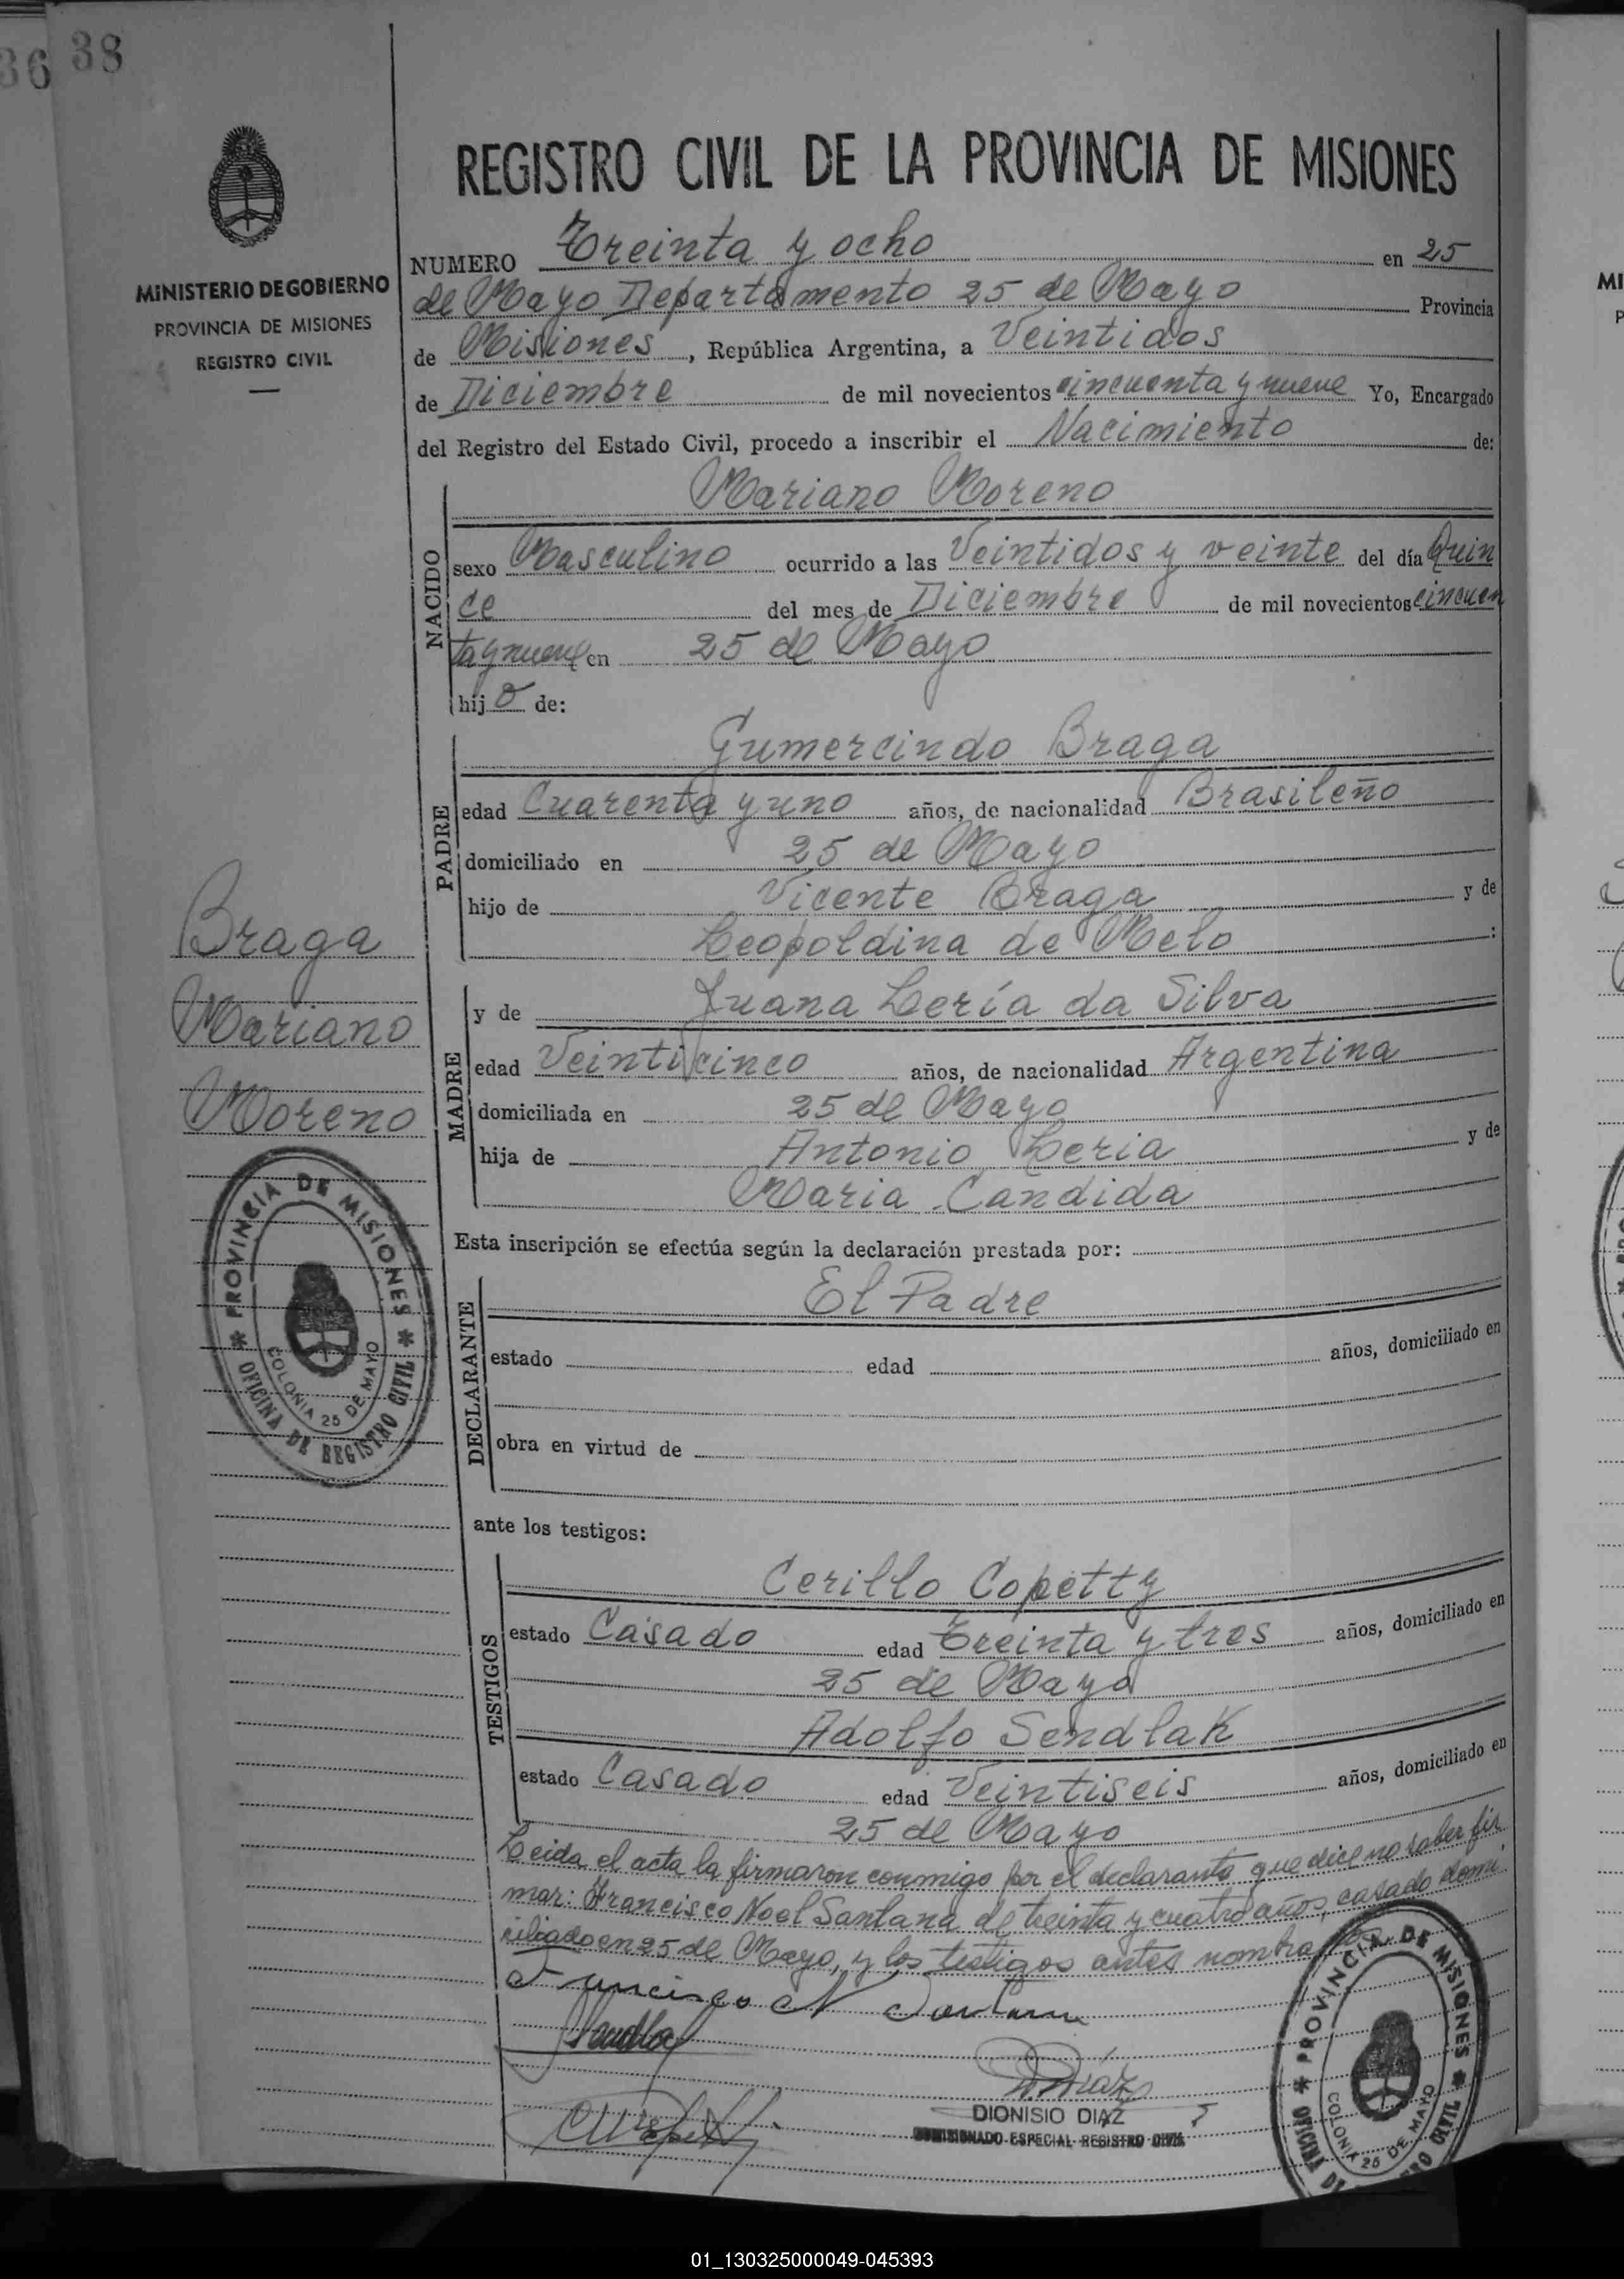 36 38
MINISTERIO DE GOBIERNO
PROVINCIA DE MISIONES
REGISTRO CIVIL
REGISTRO CIVIL DE LA PROVINCIA DE MISIONES
NUMERO Treinta y ocho en 25
de Mayo Departamento 25 de Mayo Provincia
de Misiones, República Argentina, a Veintidos
de Diciembre de mil novecientos cincuenta y nueve Yo, Encargado
del Registro del Estado Civil, procedo a inscribir el Nacimiento de:
NACIDO
Mariano Moreno
sexo Masculino ocurrido a las Veintidos y veinte del día Quin
ce del mes de Diciembre de mil novecientos cincuen
ta y nueve en 25 de Mayo
hijo de:
PADRE
Gumercindo Braga
edad Cuarenta y uno años, de nacionalidad Brasileño
domiciliado en 25 de Mayo
hijo de Vicente Braga y de
Leopoldina de Melo :
MADRE
y de Juana Lería da Silva
edad Veinticinco años, de nacionalidad Argentina
domiciliada en 25 de Mayo
hija de Antonio Leria y de
Maria Candida
Esta inscripción se efectúa según la declaración prestada por:
DECLARANTE
El Padre
estado edad años, domiciliado en
obra en virtud de
ante los testigos:
TESTIGOS
Cerillo Copetty
estado Casado edad Treinta y tres años, domiciliado en
25 de Mayo
Adolfo Sendlak
estado Casado edad Veintiseis años, domiciliado en
25 de Mayo
Leida el acta la firmaron conmigo por el declarante que dice no saber fir
mar: Francisco Noel Santana de treinta y cuatro años, casado domi
ciliado en 25 de Mayo, y los testigos antes nombra
Francisco N Santana
D. Diaz
DIONISIO DIAZ
COMISIONADO ESPECIAL REGISTRO CIVIL
Braga
Mariano
Moreno
PROVINCIA DE MISIONES
OFICINA DE REGISTRO CIVIL
COLONIA 25 DE MAYO
PROVINCIA DE MISIONES
OFICINA DE REGISTRO CIVIL
COLONIA 25 DE MAYO
MI
P
01_130325000049-045393